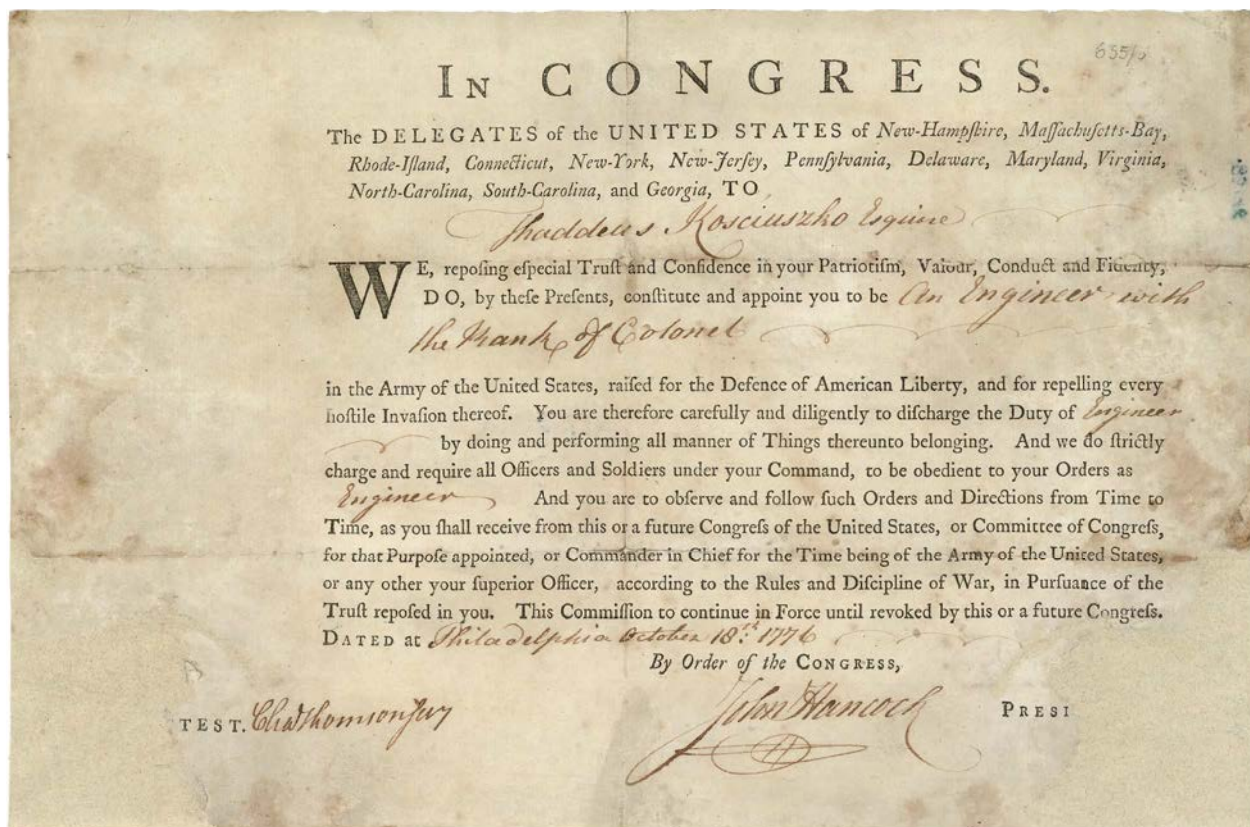 655/6
IN CONGRESS.
The DELEGATES of the UNITED STATES of New-Hampſhire, Maſſachuſetts-Bay,
Rhode-Iſland, Connecticut, New-York, New-Jerſey, Pennſylvania, Delaware, Maryland, Virginia,
North-Carolina, South-Carolina, and Georgia, TO
Thaddeus Kosciuszko Esquire
WE, repoſing eſpecial Truſt and Confidence in your Patriotiſm, Valour, Conduct and Fidelity,
DO, by theſe Preſents, conſtitute and appoint you to be An Engineer with
the Rank of Colonel
in the Army of the United States, raiſed for the Defence of American Liberty, and for repelling every
hoſtile Invaſion thereof. You are therefore carefully and diligently to diſcharge the Duty of Engineer
by doing and performing all manner of Things thereunto belonging. And we do ſtrictly
charge and require all Officers and Soldiers under your Command, to be obedient to your Orders as
Engineer And you are to obſerve and follow ſuch Orders and Directions from Time to
Time, as you ſhall receive from this or a future Congreſs of the United States, or Committee of Congreſs,
for that Purpoſe appointed, or Commander in Chief for the Time being of the Army of the United States,
or any other your ſuperior Officer, according to the Rules and Diſcipline of War, in Purſuance of the
Truſt repoſed in you. This Commiſſion to continue in Force until revoked by this or a future Congreſs.
DATED at Philadelphia October 18th. 1776
By Order of the CONGRESS,
TEST. Chas Thomson Secy John Hancock PRESI